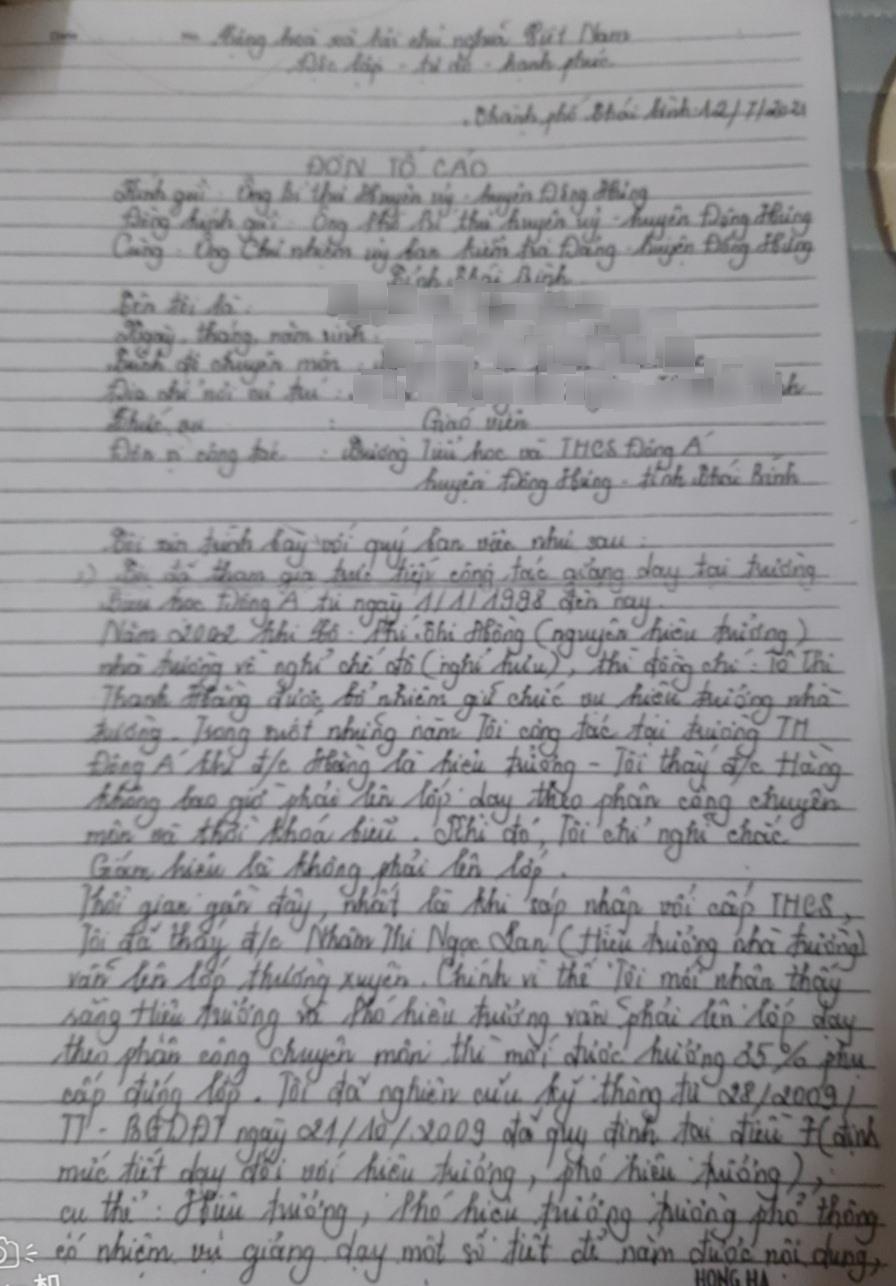 Cộng hoà xã hội chủ nghĩa Việt Nam
Độc lập - tự do - hạnh phúc
Thành phố Thái Bình 12/7/2021
ĐƠN TỐ CÁO
Kính gửi: Ông bí thư Huyện uỷ - huyện Đông Hưng
Đồng kính gửi: Ông Phó Bí thư huyện uỷ - huyện Đông Hưng
Cùng: Ông Chủ nhiệm uỷ ban kiểm tra Đảng - huyện Đông Hưng
Tỉnh Thái Bình
Tên tôi là:
Ngày, tháng, năm sinh:
Trình độ chuyên môn:
Địa chỉ nơi cư trú:
Chức vụ : Giáo viên
Đơn vị công tác : Trường Tiểu học và THCS Đông Á
huyện Đông Hưng - tỉnh Thái Bình
Tôi xin trình bày với quý ban việc như sau:
Tôi đã tham gia trực tiếp công tác giảng dạy tại trường
Tiểu học Đông Á từ ngày 1/1/1998 đến nay.
Năm 2002 khi Phí Thị Hồng (nguyên hiệu trưởng)
nhà trường về nghỉ chế độ (nghỉ hưu), thì đồng chí: Tô Thị
Thanh Hằng được bổ nhiệm giữ chức vụ hiệu trưởng nhà
trường. Trong suốt những năm Tôi công tác tại trường TH
Đông Á khi đ/c Hằng là hiệu trưởng - Tôi thấy đ/c Hằng
không bao giờ phải lên lớp dạy theo phân công chuyên
môn và thời khoá biểu. Khi đó, Tôi chỉ nghĩ chắc
Giám hiệu là không phải lên lớp.
Thời gian gần đây, nhất là khi sáp nhập với cấp THCS,
Tôi đã thấy đ/c Nhâm Thị Ngọc Lan (Hiệu trưởng nhà trường)
vẫn lên lớp thường xuyên. Chính vì thế Tôi mới nhận thấy
rằng Hiệu trưởng và Phó hiệu trưởng vẫn phải lên lớp dạy
theo phân công chuyên môn thì mới được hưởng 35% phụ
cấp đứng lớp. Tôi đã nghiên cứu kỹ thông tư 28/2009/
TT-BGDĐT ngày 21/10/2009 đã quy định tại điều 7 (định
mức tiết dạy đối với hiệu trưởng, phó hiệu trưởng),
cụ thể: Hiệu trưởng, Phó hiệu trưởng trường phổ thông
có nhiệm vụ giảng dạy một số tiết để nắm được nội dung,
HONG HA